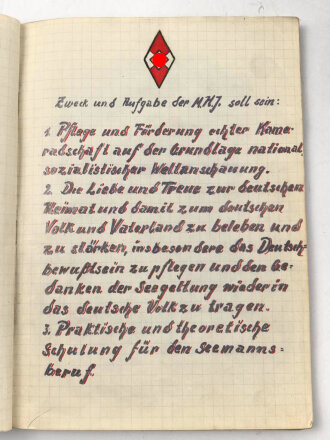 Zweck und Aufgabe der M.H.J. soll sein:
1. Pflege und Förderung echter Kame-
radschaft auf der Grundlage national-
sozialistischer Weltanschauung.
2. Die Liebe und Treue zur deutschen
Heimat und damit zum deutschen
Volk und Vaterland zu beleben und
zu stärken, insbesondere das Deutsch-
bewußtsein zu pflegen und den Ge-
danken der Seegeltung wieder in
das deutsche Volk zu tragen.
3. Praktische und theoretische
Schulung für den Seemanns-
beruf.